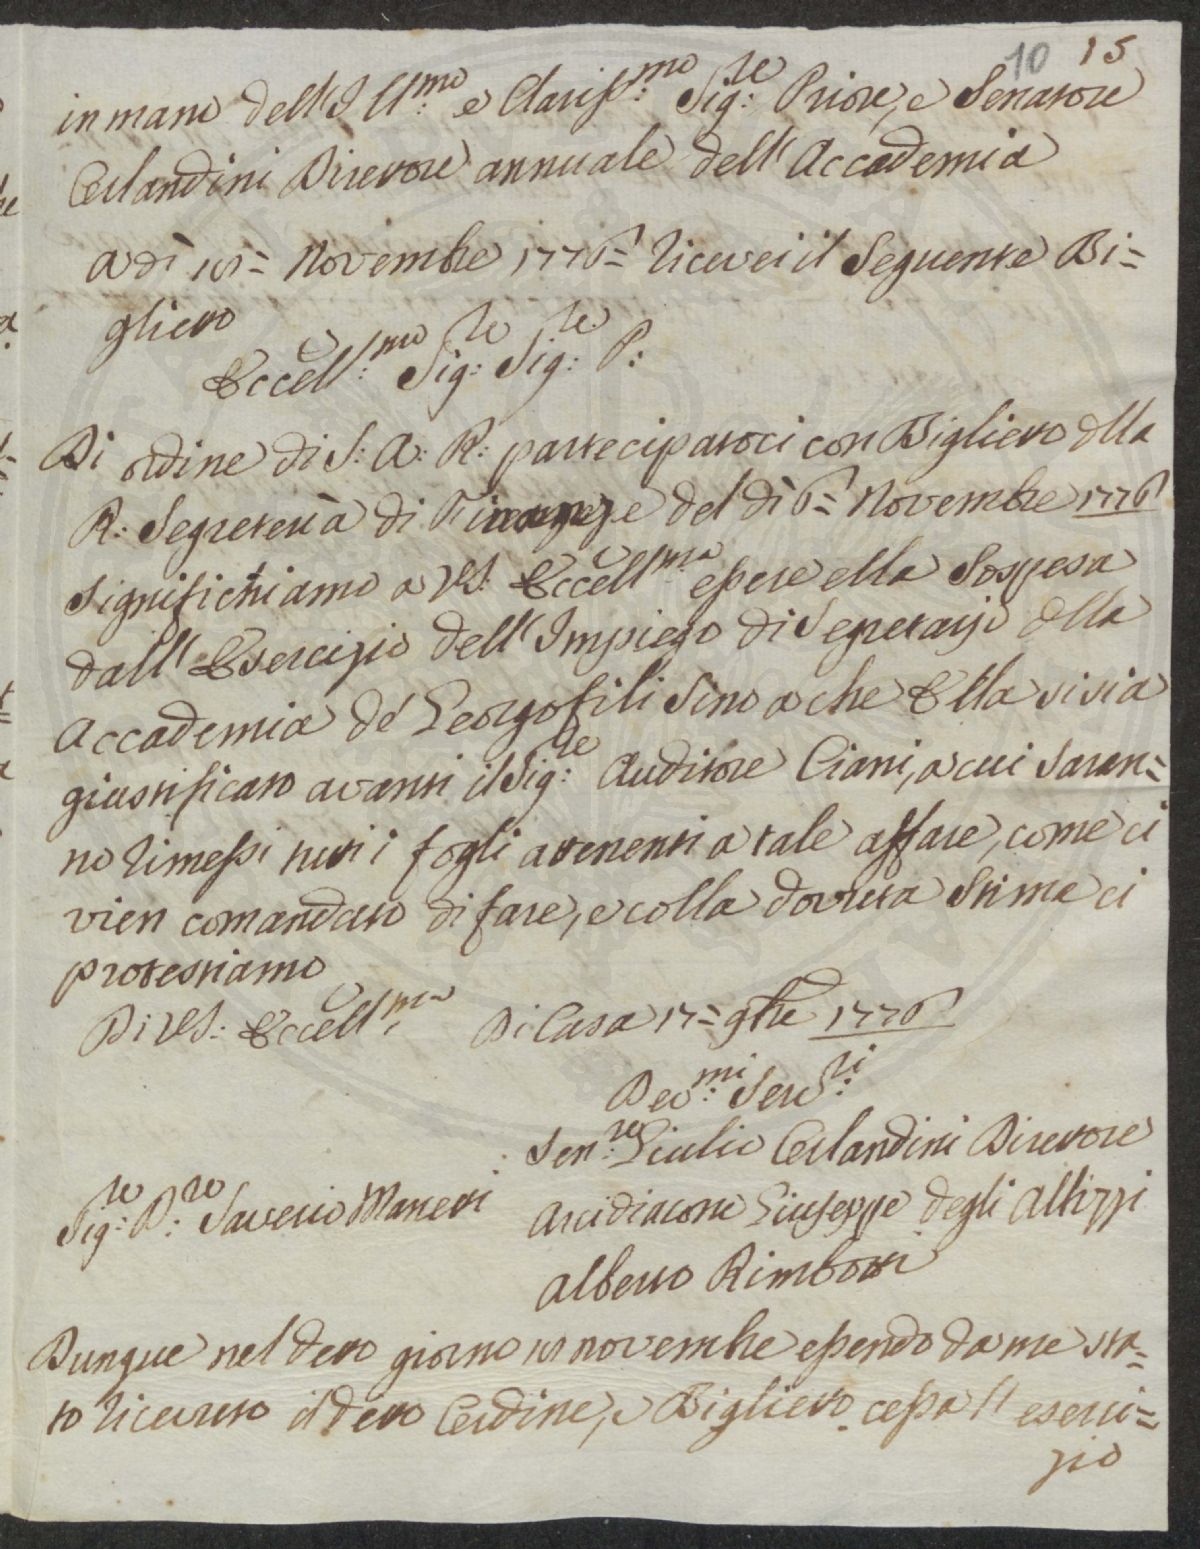 10 15
in mano dell'Ill:mo e Clariss:mo Sig:re Priore, e Senatore
Orlandini Direttore annuale dell'Accademia
A dì 18= Novembre 1776= ricevei il Seguente Bi=
glietto
Eccell:mo Sig:re Sig:re P:
Di ordine di S: A: R: partecipatoci con Biglietto della
R: Segreteria di Firenze del dì 6= Novembre 1776
significhiamo a VS: Eccell:ma essere ella Sospesa
dall'Esercizio dell'Impiego di Segretario della
Accademia de' Georgofili Sino a che Ella si sia
giustificato avanti il Sig:re Auditore Ciani, a cui Saran=
no rimessi tutti i fogli attenenti a tale affare, come ci
vien comandato di fare, e colla dovuta Stima ci
protestiamo
Di VS: Eccell:ma Di Casa 17= 9bre 1776
Dev:mi Serv:ri
Sen:re Giulio Orlandini Direttore
Sig:re D:re Saverio Manetti Arcidiacono Giuseppe degli Albizzi
Alberto Rimbotti
Dunque nel detto giorno 18 novembre essendo da me sta=
to ricevuto il detto Ordine, e Biglietto cessa l'eserci=
zio